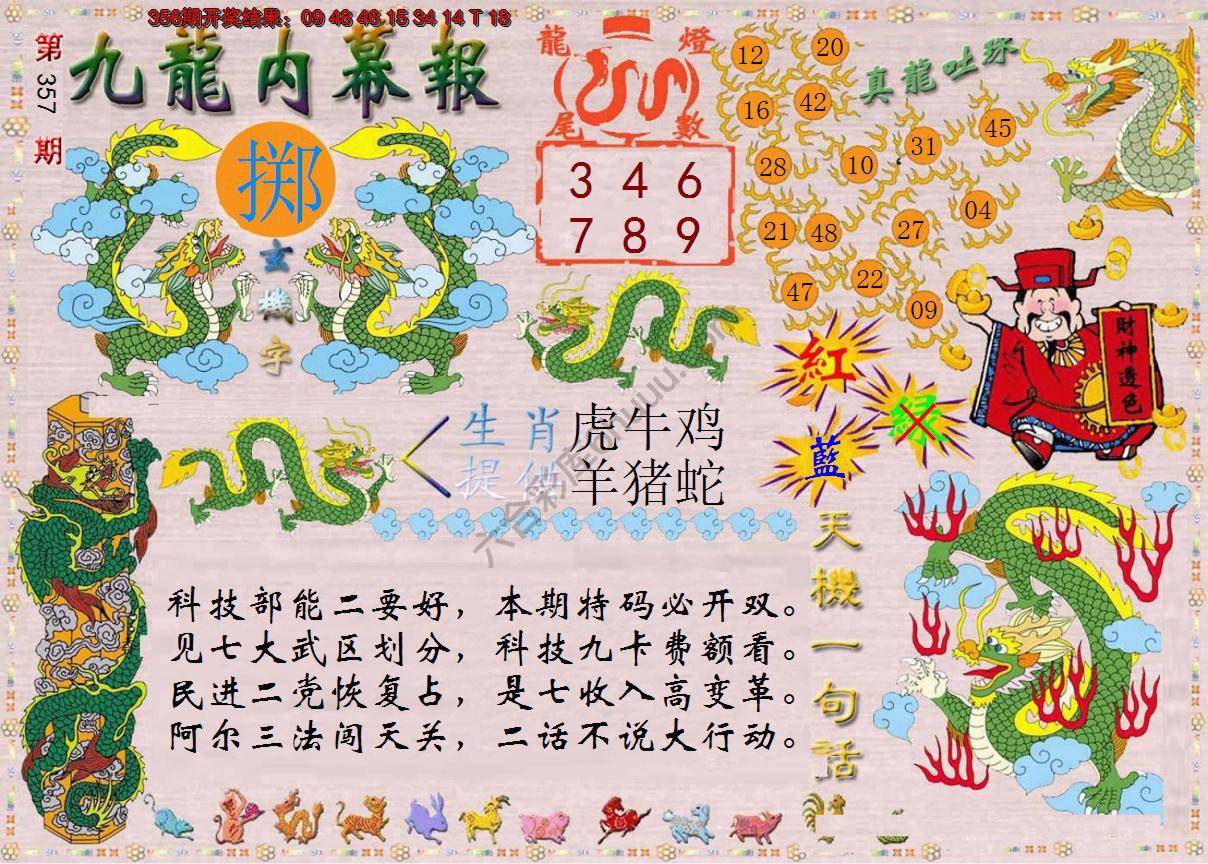 356期开奖结果：09 48 46 15 34 14 T 18
第357期
九龍內幕報
掷
玄機字
龍燈
尾數
3 4 6
7 8 9
真龍吐珠
12
20
16
42
28
10
31
45
21
48
27
04
47
22
09
紅
绿
藍
財神透色
生肖
提供
虎牛鸡
羊猪蛇
六合彩库
天機一句話
科技部能二要好，本期特码必开双。
见七大武区划分，科技九卡费额看。
民进二党恢复占，是七收入高变革。
阿尔三法闯天关，二话不说大行动。